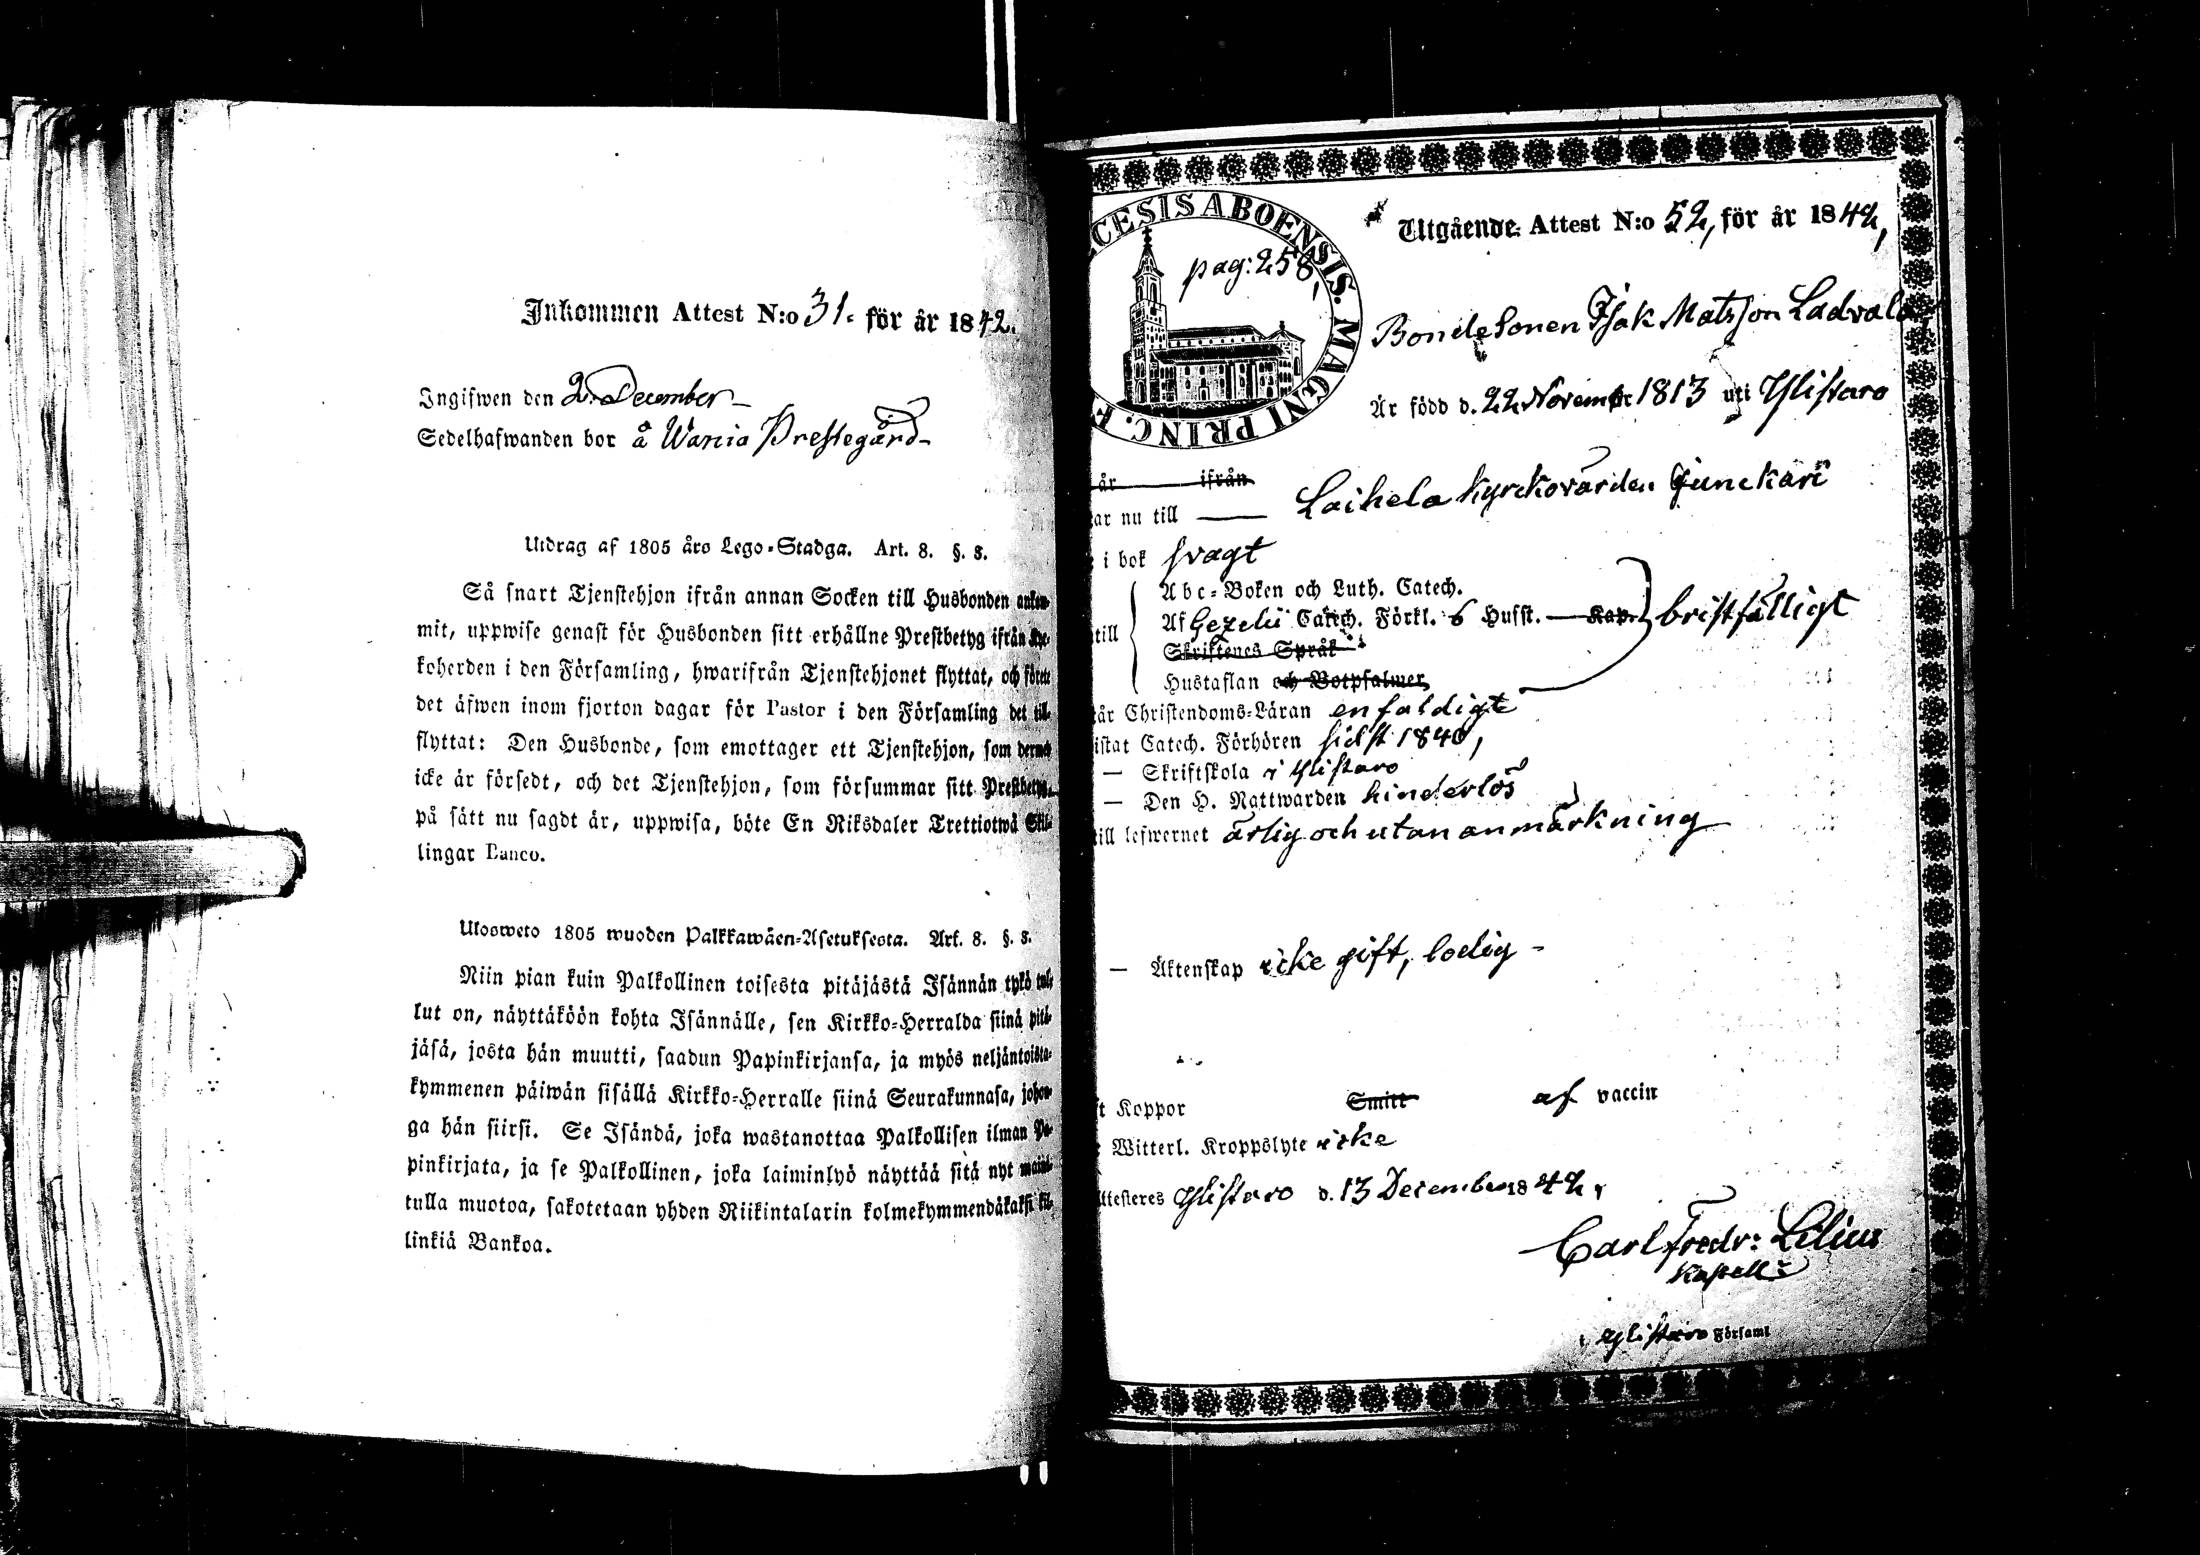 Inkommen Attest N:o 31. för år 1842.
Ingifwen den 2. December
Sedelhafwanden bor å Wania Prestegård
Utdrag af 1805 års Lego-Stadga. Art. 8. §. 8.
Så snart Tjenstehjon ifrån annan Socken till Husbonden ankom-
mit, uppwise genast för Husbonden sitt erhållne Prestbetyg ifrån Kyr-
koherden i den Församling, hwarifrån Tjenstehjonet flyttat, och förete
det äfwen inom fjorton dagar för Pastor i den Församling det till-
flyttat: Den Husbonde, som emottager ett Tjenstehjon, som dermed
icke är försedt, och det Tjenstehjon, som försummar sitt Prestbetyg,
på sätt nu sagdt är, uppwisa, böte En Riksdaler Trettiotwå Skil-
lingar Banco.
Ulosweto 1805 wuoden Palkkawäen-Asetuksesta. Art. 8. §. 8.
Niin pian kuin Palkollinen toisesta pitäjästä Isännän tykö tul-
lut on, näyttäköön kohta Isännälle, sen Kirkko-Herralda siinä pitä-
jäsä, josta hän muutti, saadun Papinkirjansa, ja myös neljäntoista-
kymmenen päiwän sisällä Kirkko-Herralle siinä Seurakunnasa, johon-
ga hän siirsi. Se Isändä, joka wastanottaa Palkollisen ilman Pa-
pinkirjata, ja se Palkollinen, joka laiminlyö näyttää sitä nyt maini-
tulla muotoa, sakotetaan yhden Riikintalarin kolmekymmendäkaksi kil-
linkiä Bankoa.
CESIS ABOENSIS. MAGNI PRINC. F
pag: 258
Utgående Attest N:o 52, för år 1842,
Bondesonen Isak Matsson Ladvala
Är född d. 22 Novembr 1813 uti Ylistaro
är ifrån
ar nu till Laihela kyrkovärden Junckari
i bok svagt
Abc-Boken och Luth. Catech.
till Af Gezelii Catech. Förkl. 6 Hufst. Kap. bristfälligt
Skriftenes Språk
Hustaflan och Botpsalmer
år Christendoms-Läran enfaldigt
istat Catech. Förhören sidst 1840,
— Skriftskola i Ylistaro
— Den H. Nattwarden hinderlös
till lefwernet ärlig och utan anmärkning
— Äktenskap icke gift, ledig
t Koppor Smitt af vaccin
Witterl. Kroppslyte icke
ttesteres Ylistaro d. 13 December 1842,
Carl Fredr: Lilius
Kapell:
i Ylistaro Församl